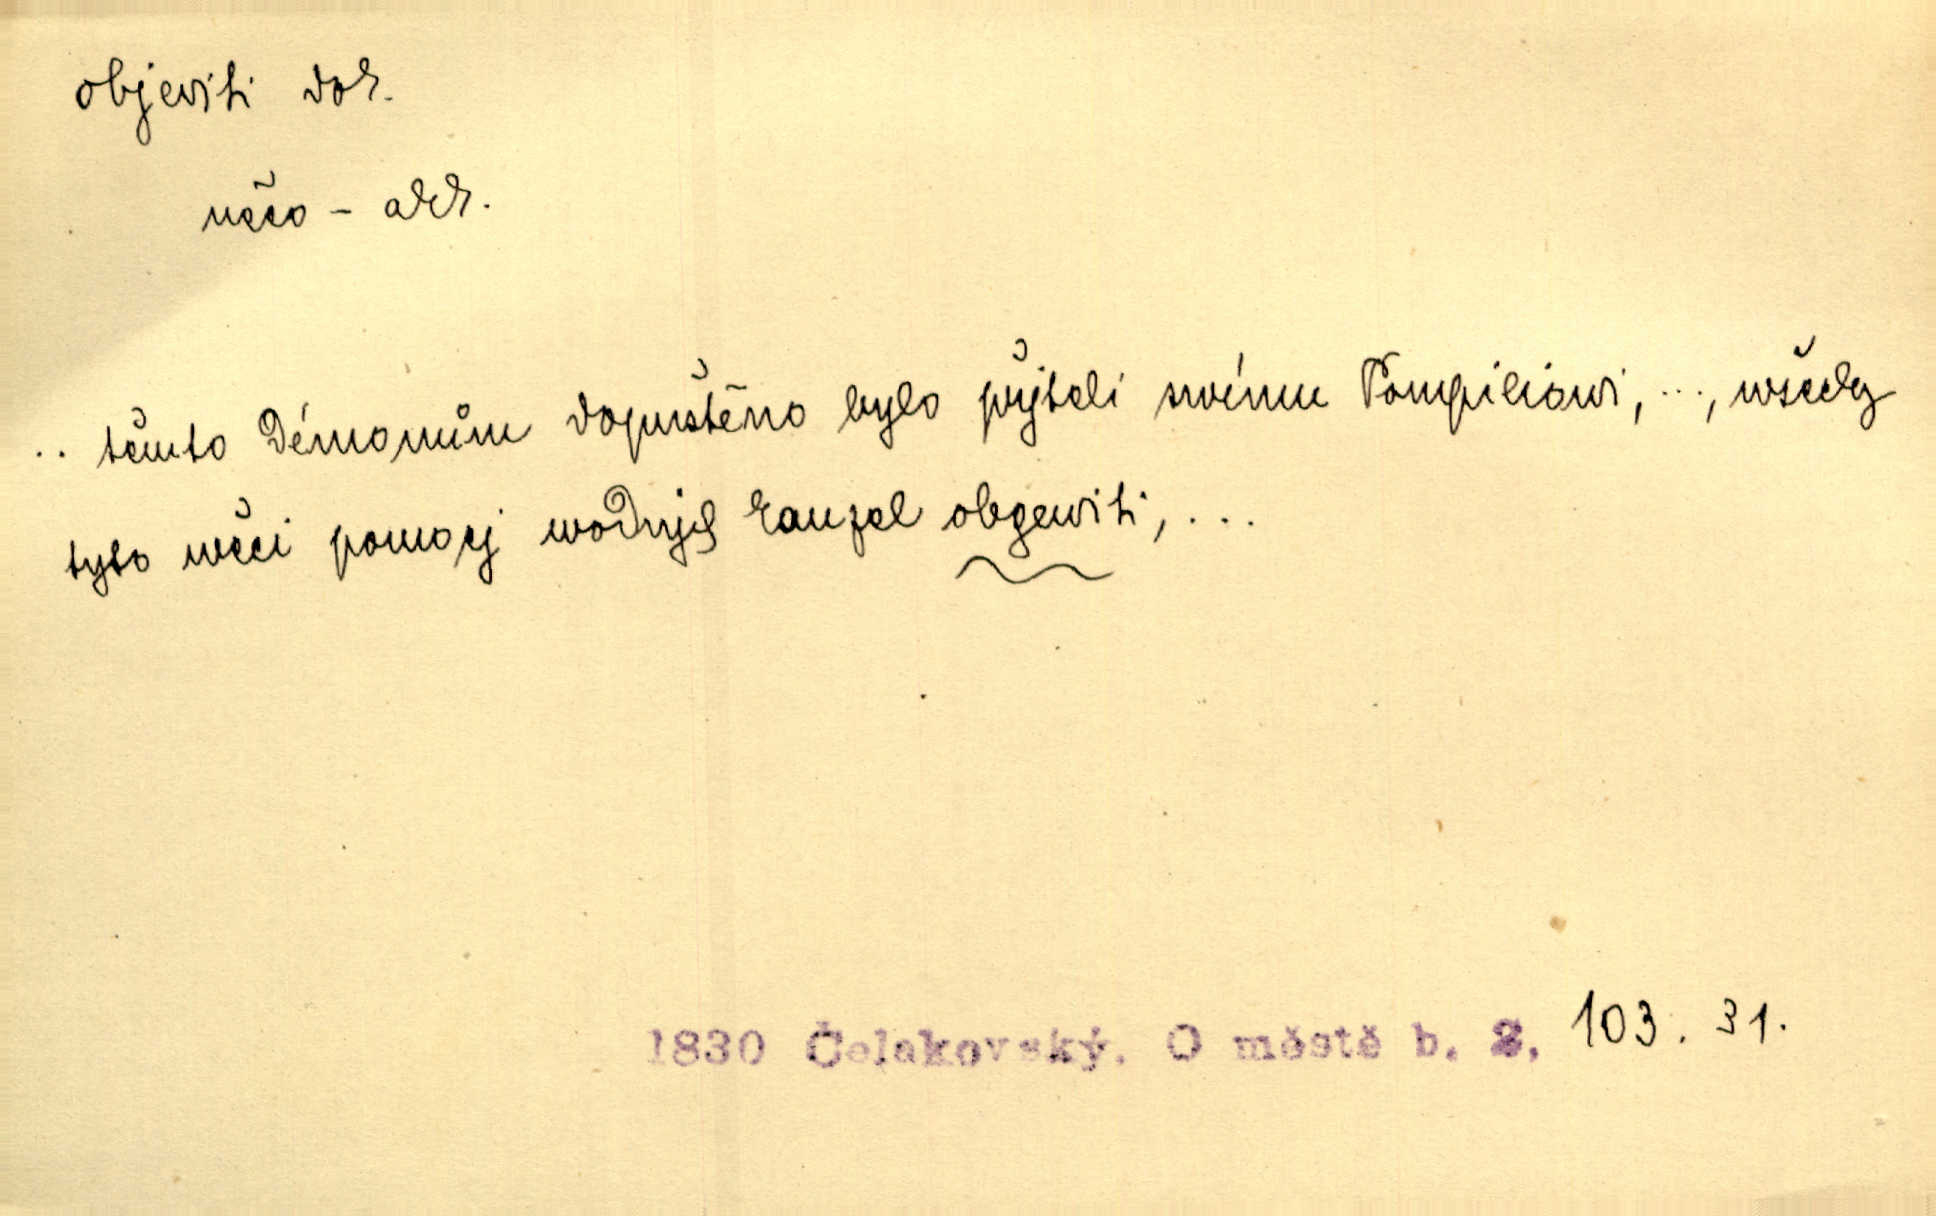 objeviti dok.
něco - akk.
.. těmto Démonům dopuštěno bylo přjteli swému Pompiliowi, ..., wšecky
tyto wěci pomocj wodných kauzel obgewiti, ...
1830 Čelakovský. O městě b. 2, 103. 31.